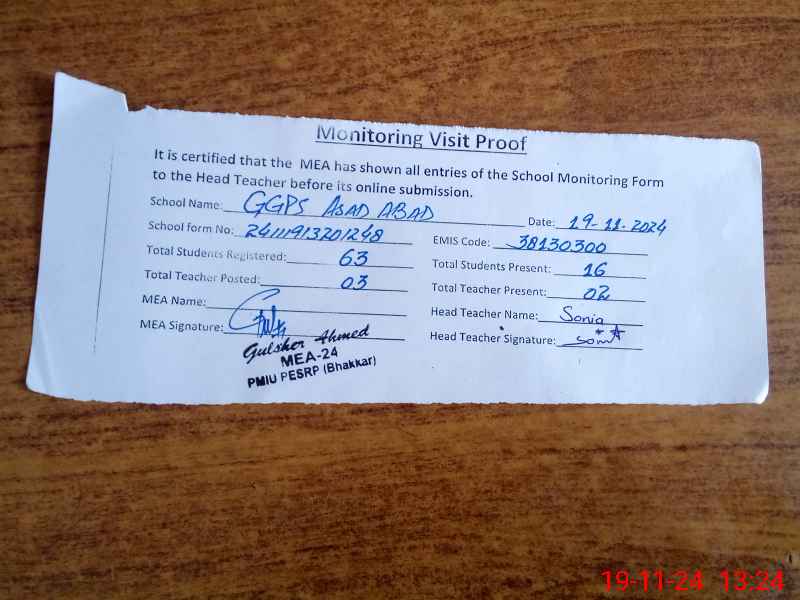 Monitoring Visit Proof
It is certified that the MEA has shown all entries of the School Monitoring Form
to the Head Teacher before its online submission.
School Name: GGPS ASAD ABAD Date: 19-11-2024
School form No: 24111913201248 EMIS Code: 38130300
Total Students Registered: 63 Total Students Present: 16
Total Teacher Posted: 03 Total Teacher Present: 02
MEA Name: Head Teacher Name: Sonia
MEA Signature: Head Teacher Signature:
Gulsher Ahmed
MEA-24
PMIU PESRP (Bhakkar)
19-11-24 13:24